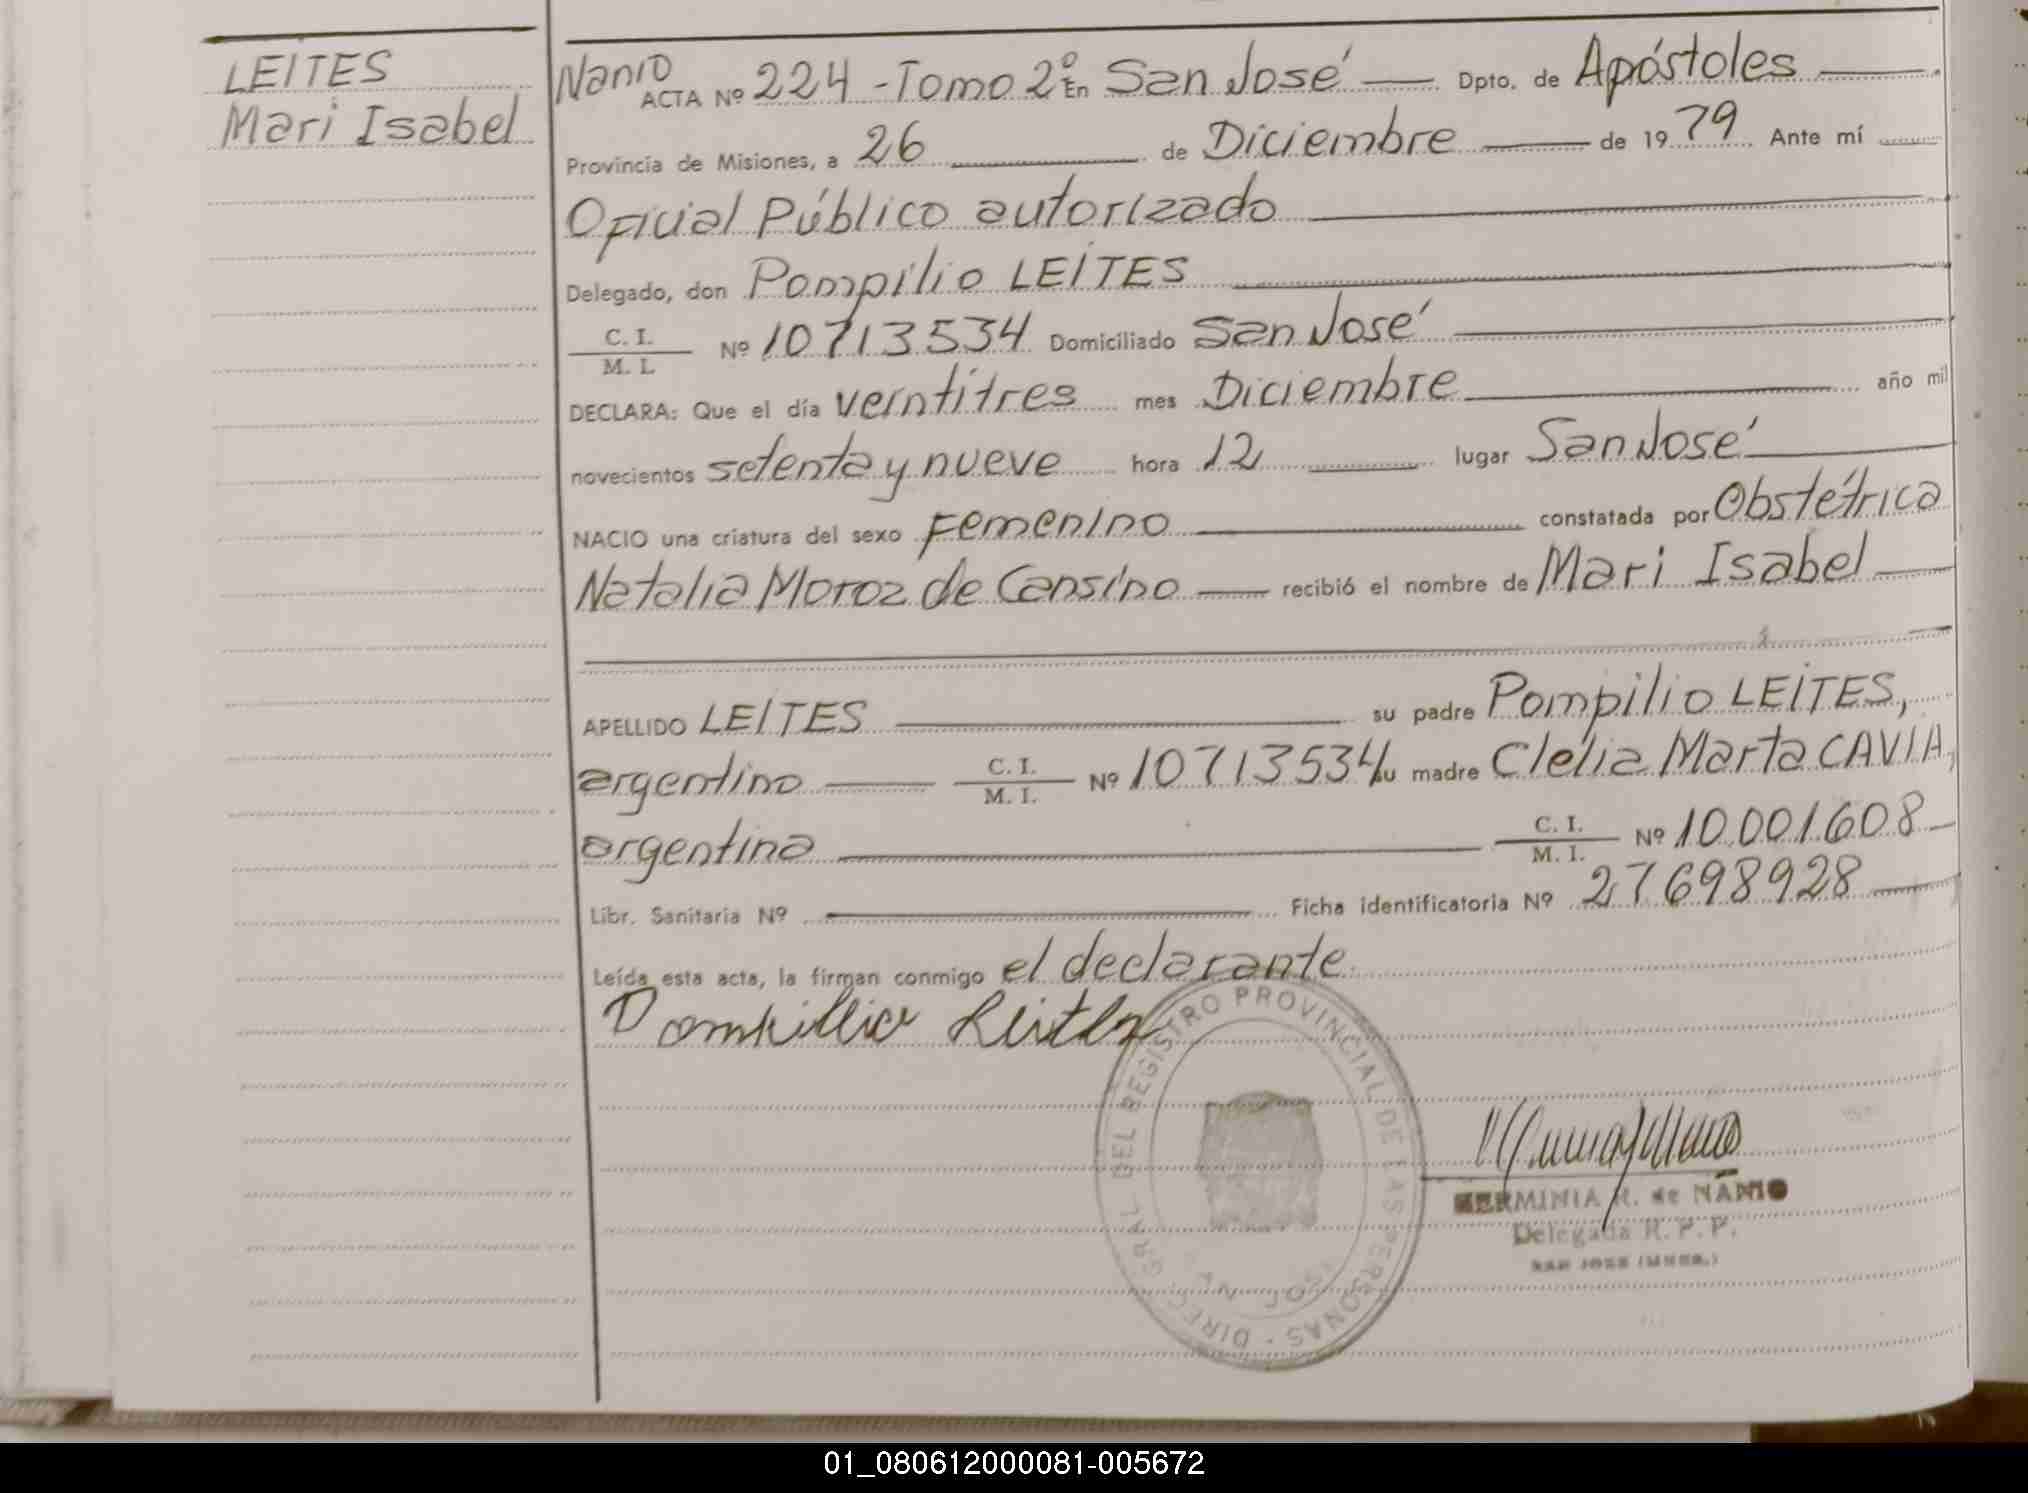 LEITES
Mari Isabel
Nanio
ACTA Nº 224 - Tomo 2º En San José — Dpto. de Apóstoles —
Provincia de Misiones, a 26 — de Diciembre — de 1979 Ante mí
Oficial Público autorizado —
Delegado, don Pompilio LEITES —
C. I.
M. I. Nº 10713534 Domiciliado San José —
DECLARA: Que el día veintitres mes Diciembre — año mil
novecientos setenta y nueve hora 12 — lugar San José —
NACIO una criatura del sexo Femenino — constatada por Obstétrica
Natalia Moroz de Cansino — recibió el nombre de Mari Isabel —
APELLIDO LEITES — su padre Pompilio LEITES,
argentino — C. I.
M. I. Nº 10713534 su madre Clelia Marta CAVIA,
argentina — C. I.
M. I. Nº 10.001.608 —
Libr. Sanitaria Nº — Ficha identificatoria Nº 27698928 —
Leída esta acta, la firman conmigo el declarante
Pompillio Leites
DIREC. GRAL. DEL REGISTRO PROVINCIAL DE LAS PERSONAS
SAN JOSE
HERMINIA R. de NANIO
Delegada R. P. P.
SAN JOSE (MNES.)
01_080612000081-005672